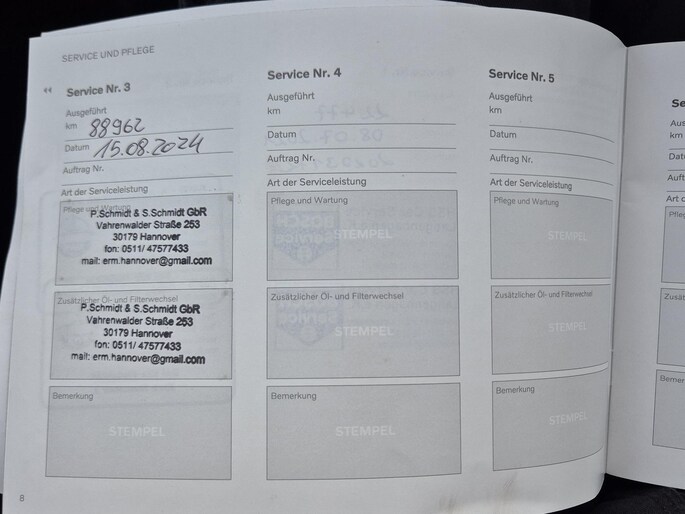 SERVICE UND PFLEGE
Service Nr. 3
Ausgeführt
km 88962
Datum 15.08.2024
Auftrag Nr.
Art der Serviceleistung
Pflege und Wartung
P.Schmidt & S.Schmidt GbR
Vahrenwalder Straße 253
30179 Hannover
fon: 0511/ 47577433
mail: erm.hannover@gmail.com
Zusätzlicher Öl- und Filterwechsel
P.Schmidt & S.Schmidt GbR
Vahrenwalder Straße 253
30179 Hannover
fon: 0511/ 47577433
mail: erm.hannover@gmail.com
Bemerkung
STEMPEL
8
Service Nr. 4
Ausgeführt
km
Datum
Auftrag Nr.
Art der Serviceleistung
Pflege und Wartung
STEMPEL
Zusätzlicher Öl- und Filterwechsel
STEMPEL
Bemerkung
STEMPEL
Service Nr. 5
Ausgeführt
km
Datum
Auftrag Nr.
Art der Serviceleistung
Pflege und Wartung
STEMPEL
Zusätzlicher Öl- und Filterwechsel
STEMPEL
Bemerkung
STEMPEL
km